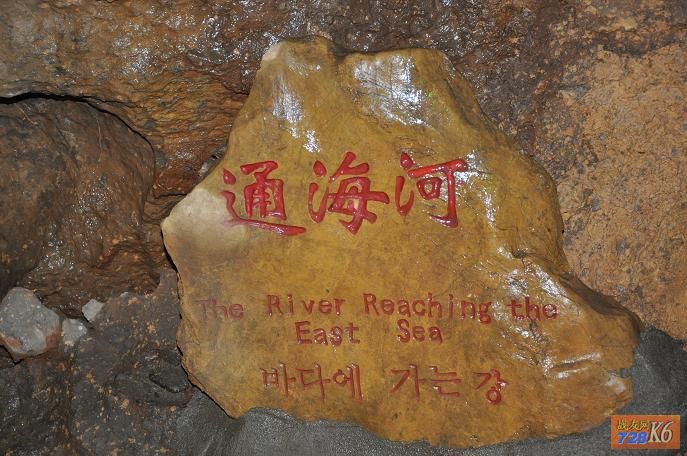 通海河
The River Reaching the
East Sea
바다에 가는 강
战友网
728K6